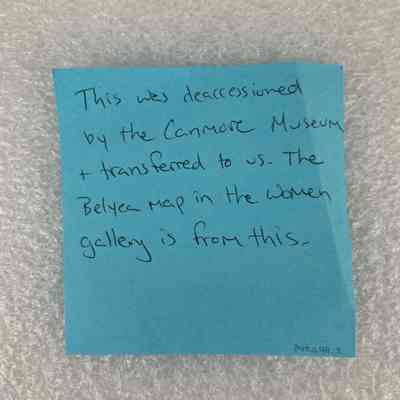 This was deaccessioned
by the Canmore Museum
+ transferred to us. The
Belyea map in the women
gallery is from this.